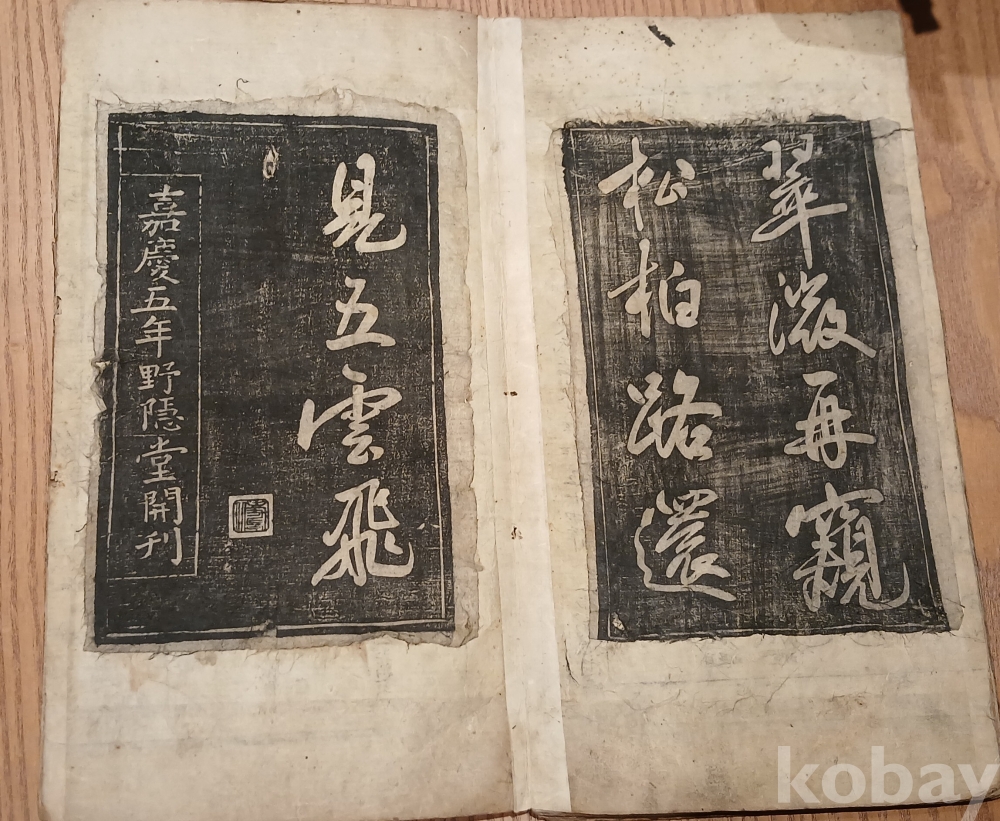 翠微再窺
松柏路還
見五雲飛
嘉慶五年野隱堂開刊
kobay